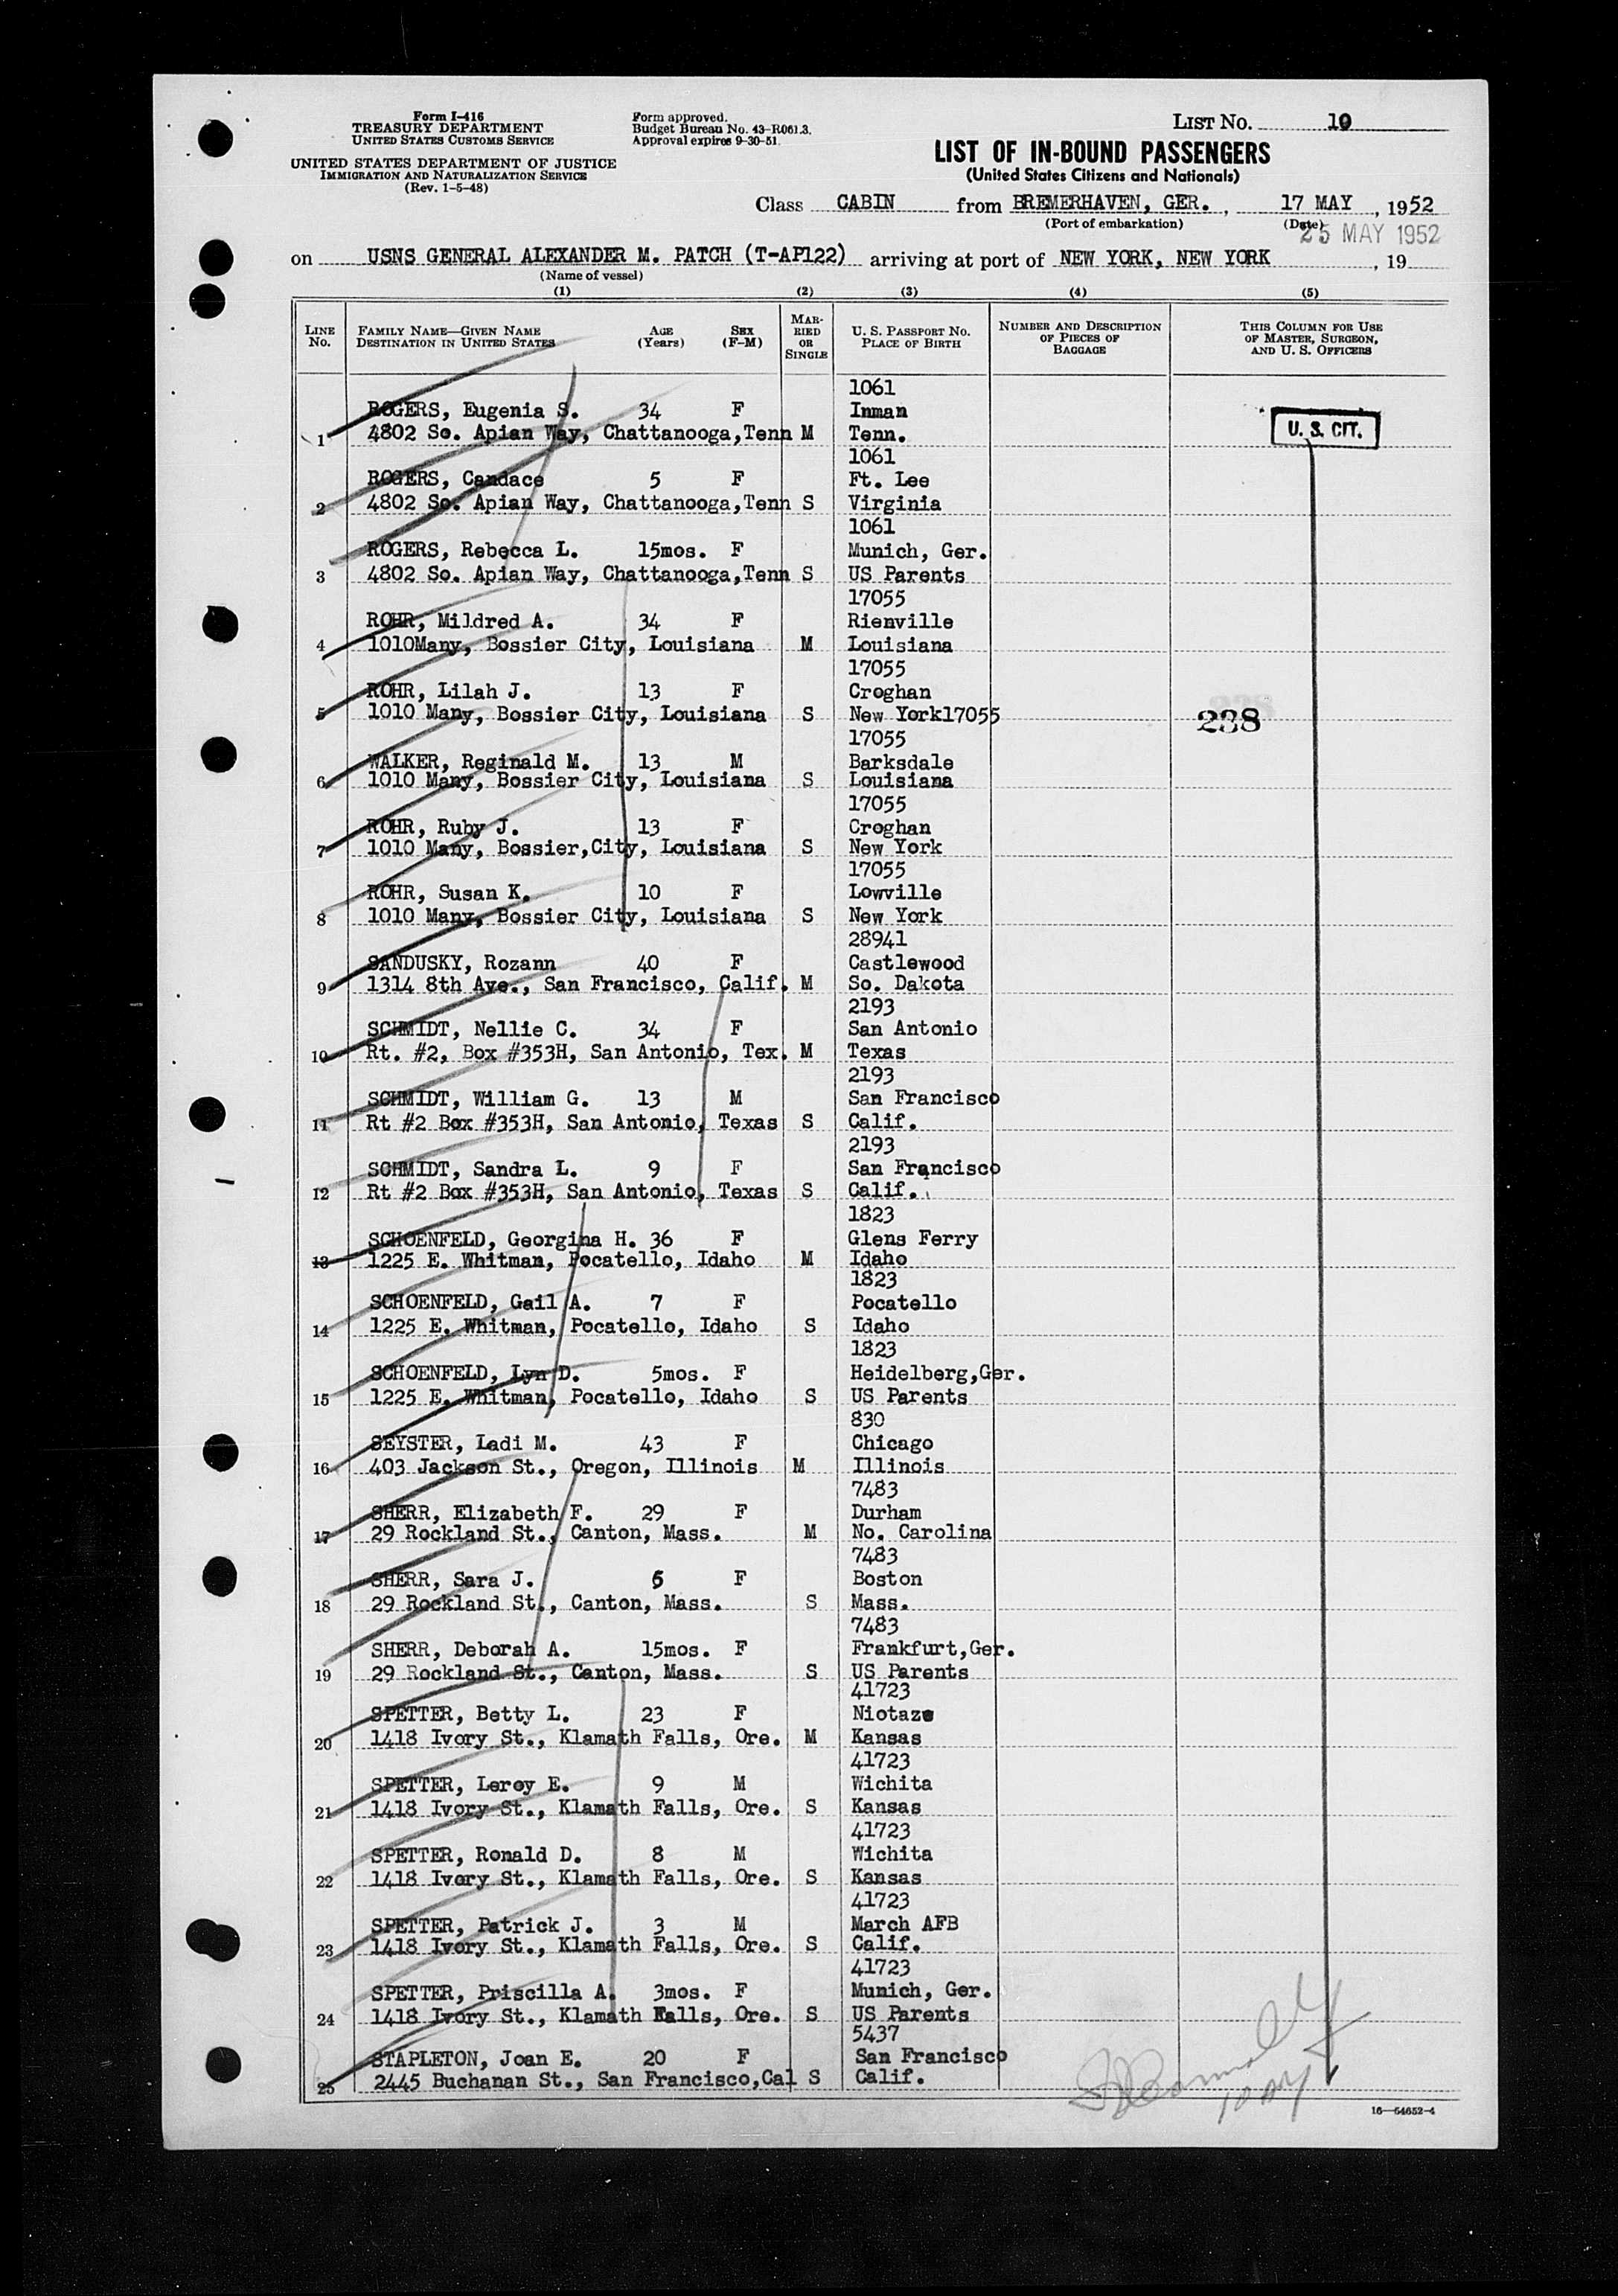 Form I-416
TREASURY DEPARTMENT
UNITED STATES CUSTOMS SERVICE
UNITED STATES DEPARTMENT OF JUSTICE
IMMIGRATION AND NATURALIZATION SERVICE
(Rev. 1-5-48)
Form approved.
Budget Bureau No. 43-R061.3.
Approval expires 9-30-51.
LIST NO. 10
LIST OF IN-BOUND PASSENGERS
(United States Citizens and Nationals)
Class CABIN from BREMERHAVEN, GER., 17 MAY, 1952
(Port of embarkation) (Date)
25 MAY 1952
on USNS GENERAL ALEXANDER M. PATCH (T-AP122) arriving at port of NEW YORK, NEW YORK, 19
(Name of vessel)
(1) (2) (3) (4) (5)
LINE NO.
FAMILY NAME—GIVEN NAME AGE SEX
DESTINATION IN UNITED STATES (Years) (F-M)
MARRIED OR SINGLE
U. S. PASSPORT NO. PLACE OF BIRTH
NUMBER AND DESCRIPTION OF PIECES OF BAGGAGE
THIS COLUMN FOR USE OF MASTER, SURGEON, AND U. S. OFFICERS
1061
ROGERS, Eugenia S. 34 F Inman
1 4802 So. Apian Way, Chattanooga,Tenn M Tenn.
U. S. CIT.
1061
ROGERS, Candace 5 F Ft. Lee
2 4802 So. Apian Way, Chattanooga,Tenn S Virginia
1061
ROGERS, Rebecca L. 15mos. F Munich, Ger.
3 4802 So. Apian Way, Chattanooga,Tenn S US Parents
17055
ROHR, Mildred A. 34 F Rienville
4 1010Many, Bossier City, Louisiana M Louisiana
17055
ROHR, Lilah J. 13 F Croghan
5 1010 Many, Bossier City, Louisiana S New York17055
238
17055
WALKER, Reginald M. 13 M Barksdale
6 1010 Many, Bossier City, Louisiana S Louisiana
17055
ROHR, Ruby J. 13 F Croghan
7 1010 Many, Bossier,City, Louisiana S New York
17055
ROHR, Susan K. 10 F Lowville
8 1010 Many, Bossier City, Louisiana S New York
28941
SANDUSKY, Rozann 40 F Castlewood
9 1314 8th Ave., San Francisco, Calif. M So. Dakota
2193
SCHMIDT, Nellie C. 34 F San Antonio
10 Rt. #2, Box #353H, San Antonio, Tex. M Texas
2193
SCHMIDT, William G. 13 M San Francisco
11 Rt #2 Box #353H, San Antonio, Texas S Calif.
2193
SCHMIDT, Sandra L. 9 F San Francisco
12 Rt #2 Box #353H, San Antonio, Texas S Calif.
1823
SCHOENFELD, Georgina H. 36 F Glens Ferry
13 1225 E. Whitman, Pocatello, Idaho M Idaho
1823
SCHOENFELD, Gail A. 7 F Pocatello
14 1225 E. Whitman, Pocatello, Idaho S Idaho
1823
SCHOENFELD, Lyn D. 5mos. F Heidelberg,Ger.
15 1225 E. Whitman, Pocatello, Idaho S US Parents
830
SEYSTER, Ladi M. 43 F Chicago
16 403 Jackson St., Oregon, Illinois M Illinois
7483
SHERR, Elizabeth F. 29 F Durham
17 29 Rockland St., Canton, Mass. M No. Carolina
7483
SHERR, Sara J. 6 F Boston
18 29 Rockland St., Canton, Mass. S Mass.
7483
SHERR, Deborah A. 15mos. F Frankfurt,Ger.
19 29 Rockland St., Canton, Mass. S US Parents
41723
SPETTER, Betty L. 23 F Niotaze
20 1418 Ivory St., Klamath Falls, Ore. M Kansas
41723
SPETTER, Leroy E. 9 M Wichita
21 1418 Ivory St., Klamath Falls, Ore. S Kansas
41723
SPETTER, Ronald D. 8 M Wichita
22 1418 Ivory St., Klamath Falls, Ore. S Kansas
41723
SPETTER, Patrick J. 3 M March AFB
23 1418 Ivory St., Klamath Falls, Ore. S Calif.
41723
SPETTER, Priscilla A. 3mos. F Munich, Ger.
24 1418 Ivory St., Klamath Falls, Ore. S US Parents
5437
STAPLETON, Joan E. 20 F San Francisco
25 2445 Buchanan St., San Francisco,Cal S Calif.
16—54652-4